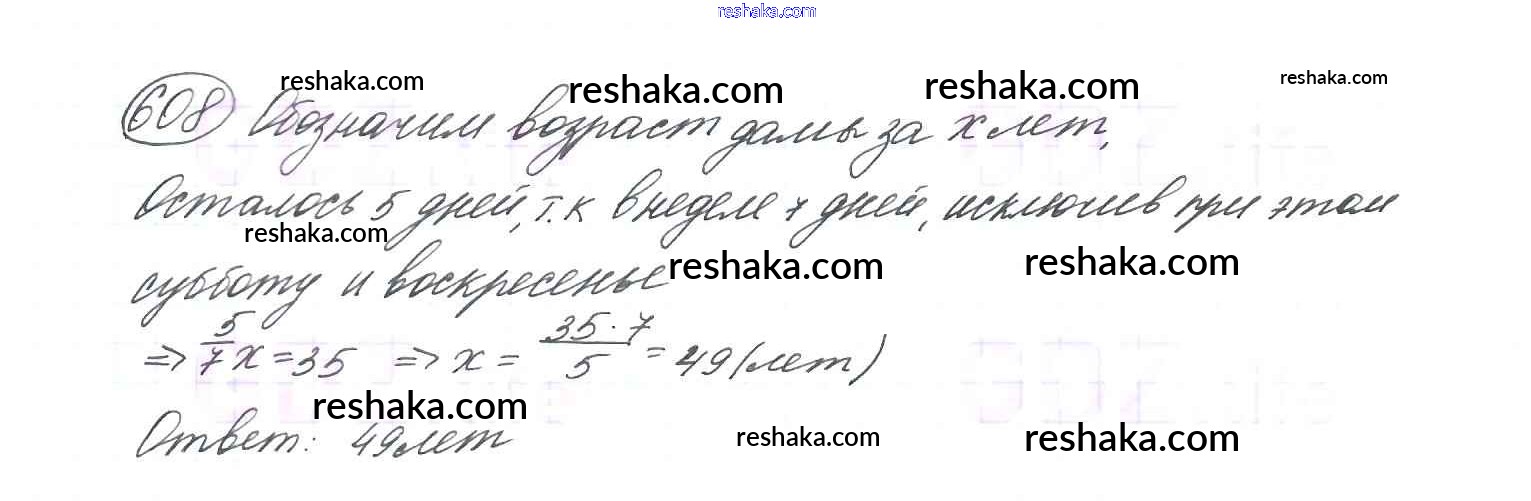 reshaka.com
reshaka.com reshaka.com reshaka.com reshaka.com
608 Обозначим возраст дамы за x лет,
Осталось 5 дней, т.к в неделе 7 дней, исключив при этом
reshaka.com
субботу и воскресенье reshaka.com reshaka.com
=> 5/7 x = 35 => x = 35·7/5 = 49 (лет)
reshaka.com
Ответ: 49 лет reshaka.com reshaka.com